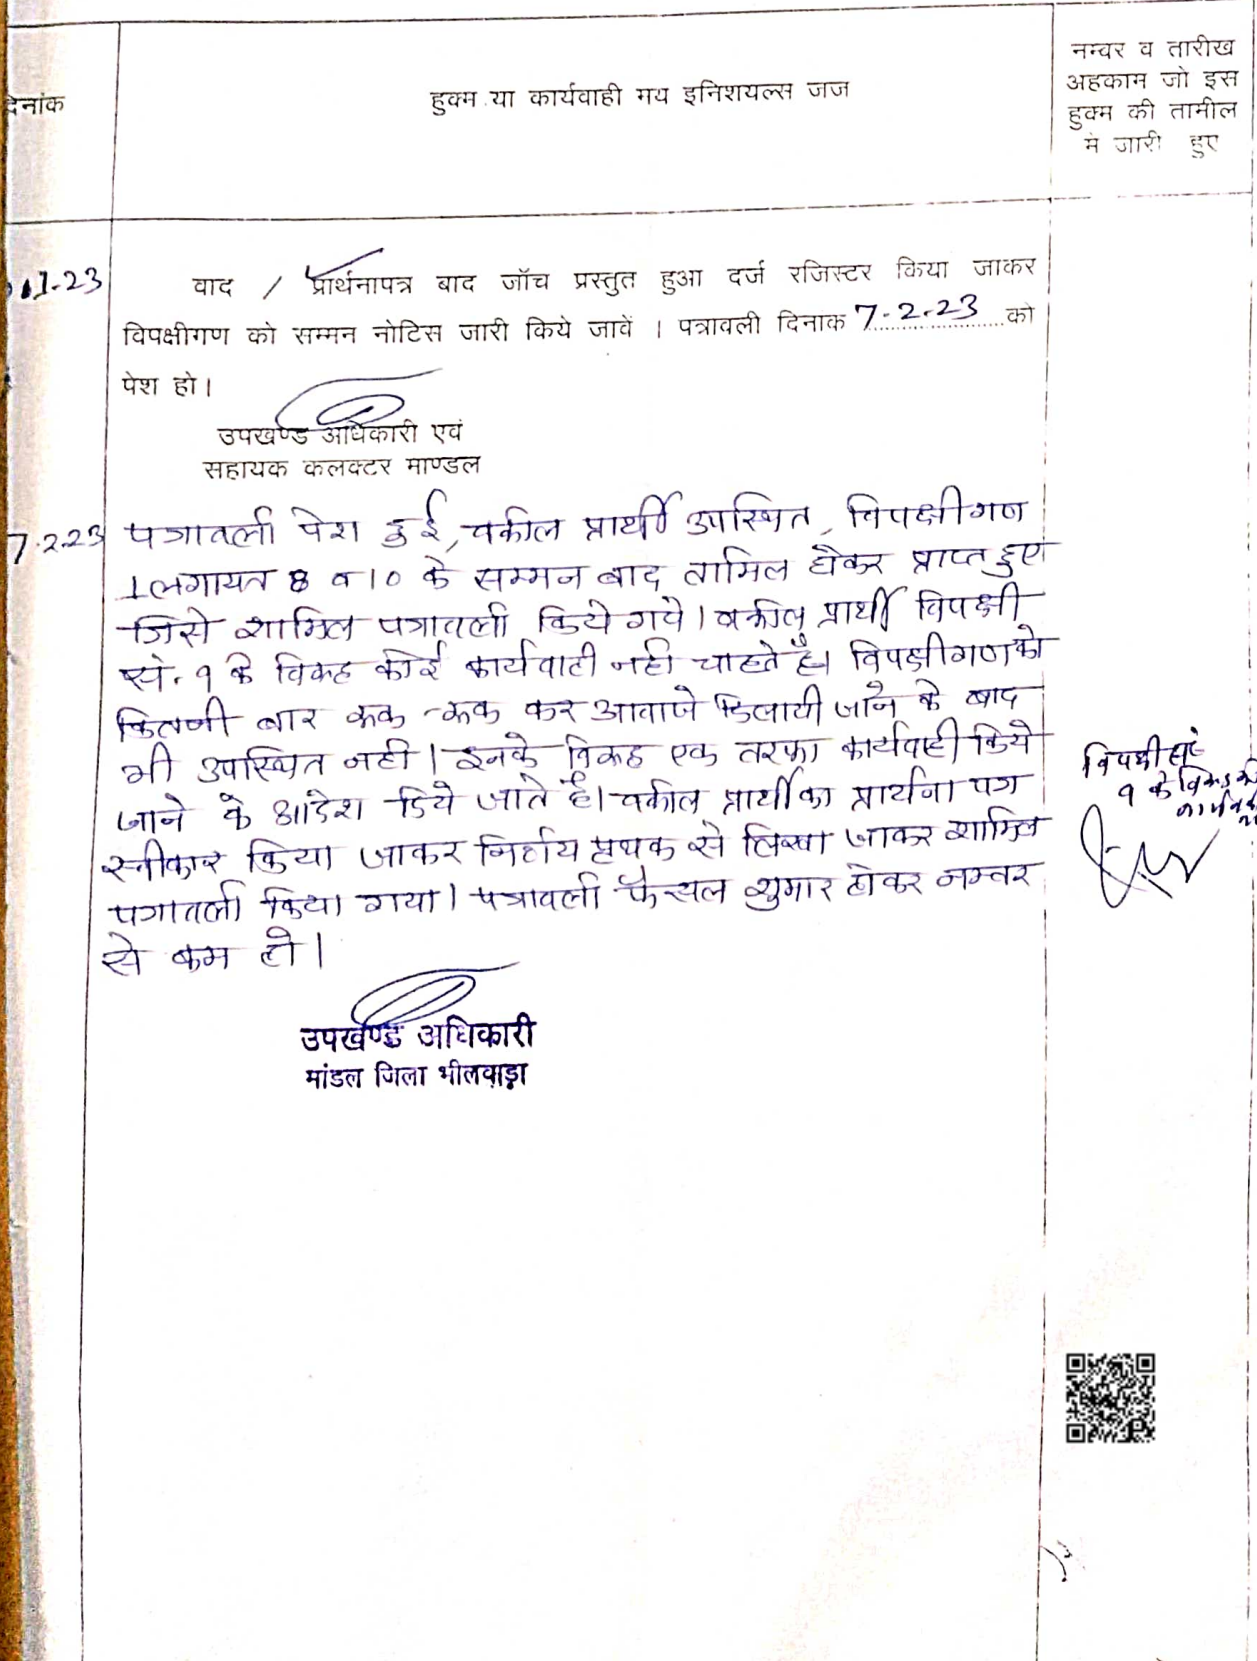 दिनांक
हुक्म या कार्यवाही मय इनिशयल्स जज
नम्वर व तारीख
अहकाम जो इस
हुक्म की तामील
मे जारी हुए
1-23
वाद / प्रार्थनापत्र बाद जॉच प्रस्तुत हुआ दर्ज रजिस्टर किया जाकर
विपक्षीगण को सम्मन नोटिस जारी किये जावें । पत्रावली दिनाक 7-2-23 को
पेश हो।
उपखण्ड अधिकारी एवं
सहायक कलक्टर माण्डल
7.2.23
पत्रावली पेश हुई, वकील प्रार्थी उपस्थित, विपक्षीगण
1 लगायत 8 व 10 के सम्मन बाद तामिल होकर प्राप्त हुए
जिसे शामिल पत्रावली किये गये। वकील प्रार्थी विपक्षी
सं. 9 के विरूद्ध कोई कार्यवाही नही चाहते है। विपक्षीगण को
कितनी बार रूक-रूक कर आवाजे दिलायी जाने के बाद
भी उपस्थित नही। इनके विरूद्ध एक तरफा कार्यवाही किये
जाने के आदेश दिये जाते है। वकील प्रार्थी का प्रार्थना पत्र
स्वीकार किया जाकर निर्णय पृथक से लिखा जाकर शामिल
पत्रावली किया गया। पत्रावली फैसल शुमार होकर नम्बर
से कम हो।
विपक्षी सं
9 के विरूद्ध
उपखण्ड अधिकारी
मांडल जिला भीलवाड़ा